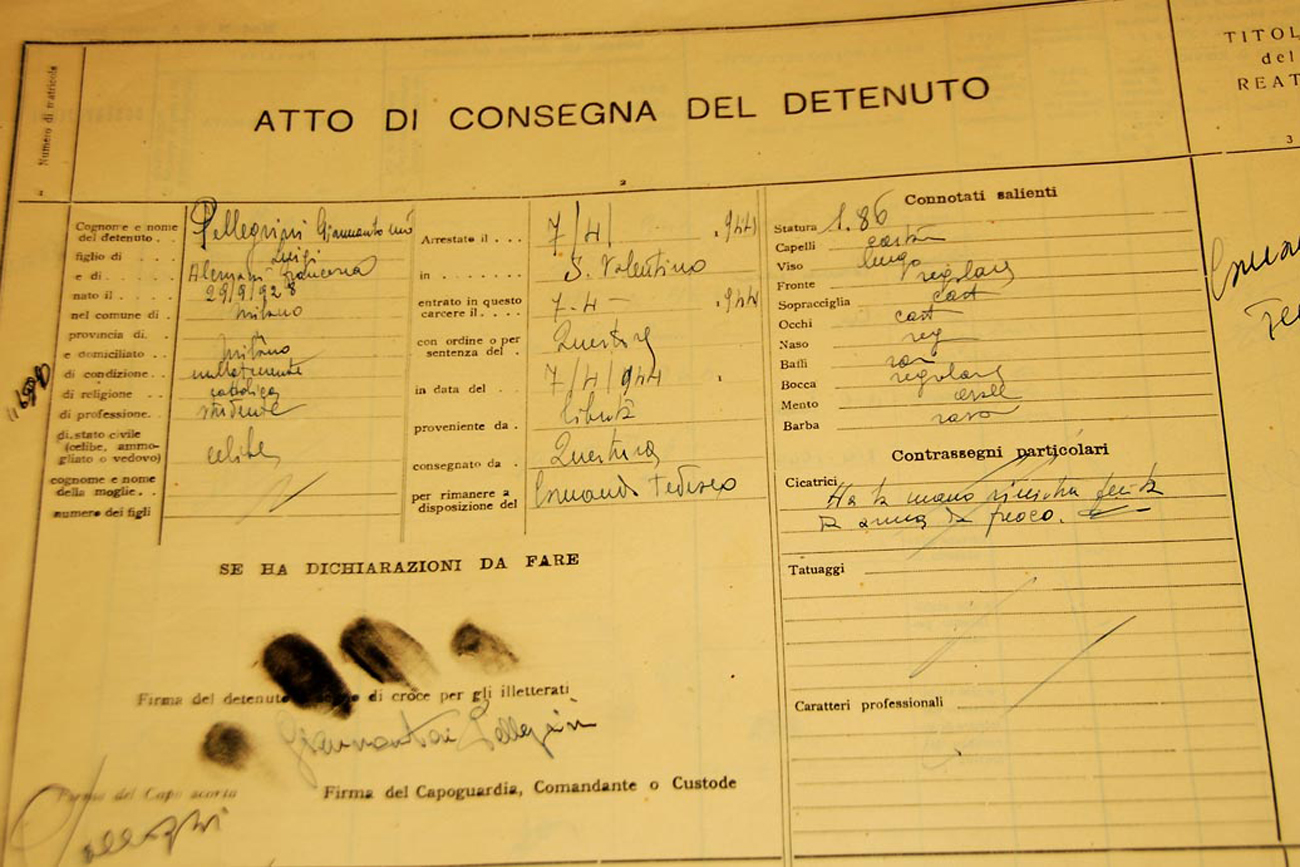 Numero di matricola
1
ATTO DI CONSEGNA DEL DETENUTO
2
TITOL
del
REAT
3
Cognome e nome
del detenuto . . Pellegrini Giannantonio
figlio di . . . . Luigi
e di . . . . . Francesca
nato il . . . . 29/9/928
nel comune di . Milano
provincia di. .
e domiciliato . . Milano
di condizione. . .
di religione . . cattolica
di professione. . studente
di stato civile
(celibe, ammo-
gliato o vedovo) celibe
cognome e nome
della moglie. . .
numero dei figli
Arrestato il . . . 7/4/ , 944
in . . . . . S. Valentino
entrato in questo
carcere il . . . . 7-4- , 944
con ordine o per
sentenza del . Questore
in data del . . 7/4/944
proveniente da . libertà
consegnato da . Questura
per rimanere a
disposizione del Comando Tedesco
Connotati salienti
Statura 1.86
Capelli cast
Viso lungo
Fronte regolare
Sopracciglia cast
Occhi cast
Naso reg
Baffi
Bocca regolare
Mento
Barba rasa
Contrassegni particolari
Cicatrici Ha la mano sinistra ferita
da arma da fuoco.
Tatuaggi
Caratteri professionali
SE HA DICHIARAZIONI DA FARE
Firma del detenuto di croce per gli illetterati
Giannantonio Pellegrini
Firma del Capo scorta
Firma del Capoguardia, Comandante o Custode